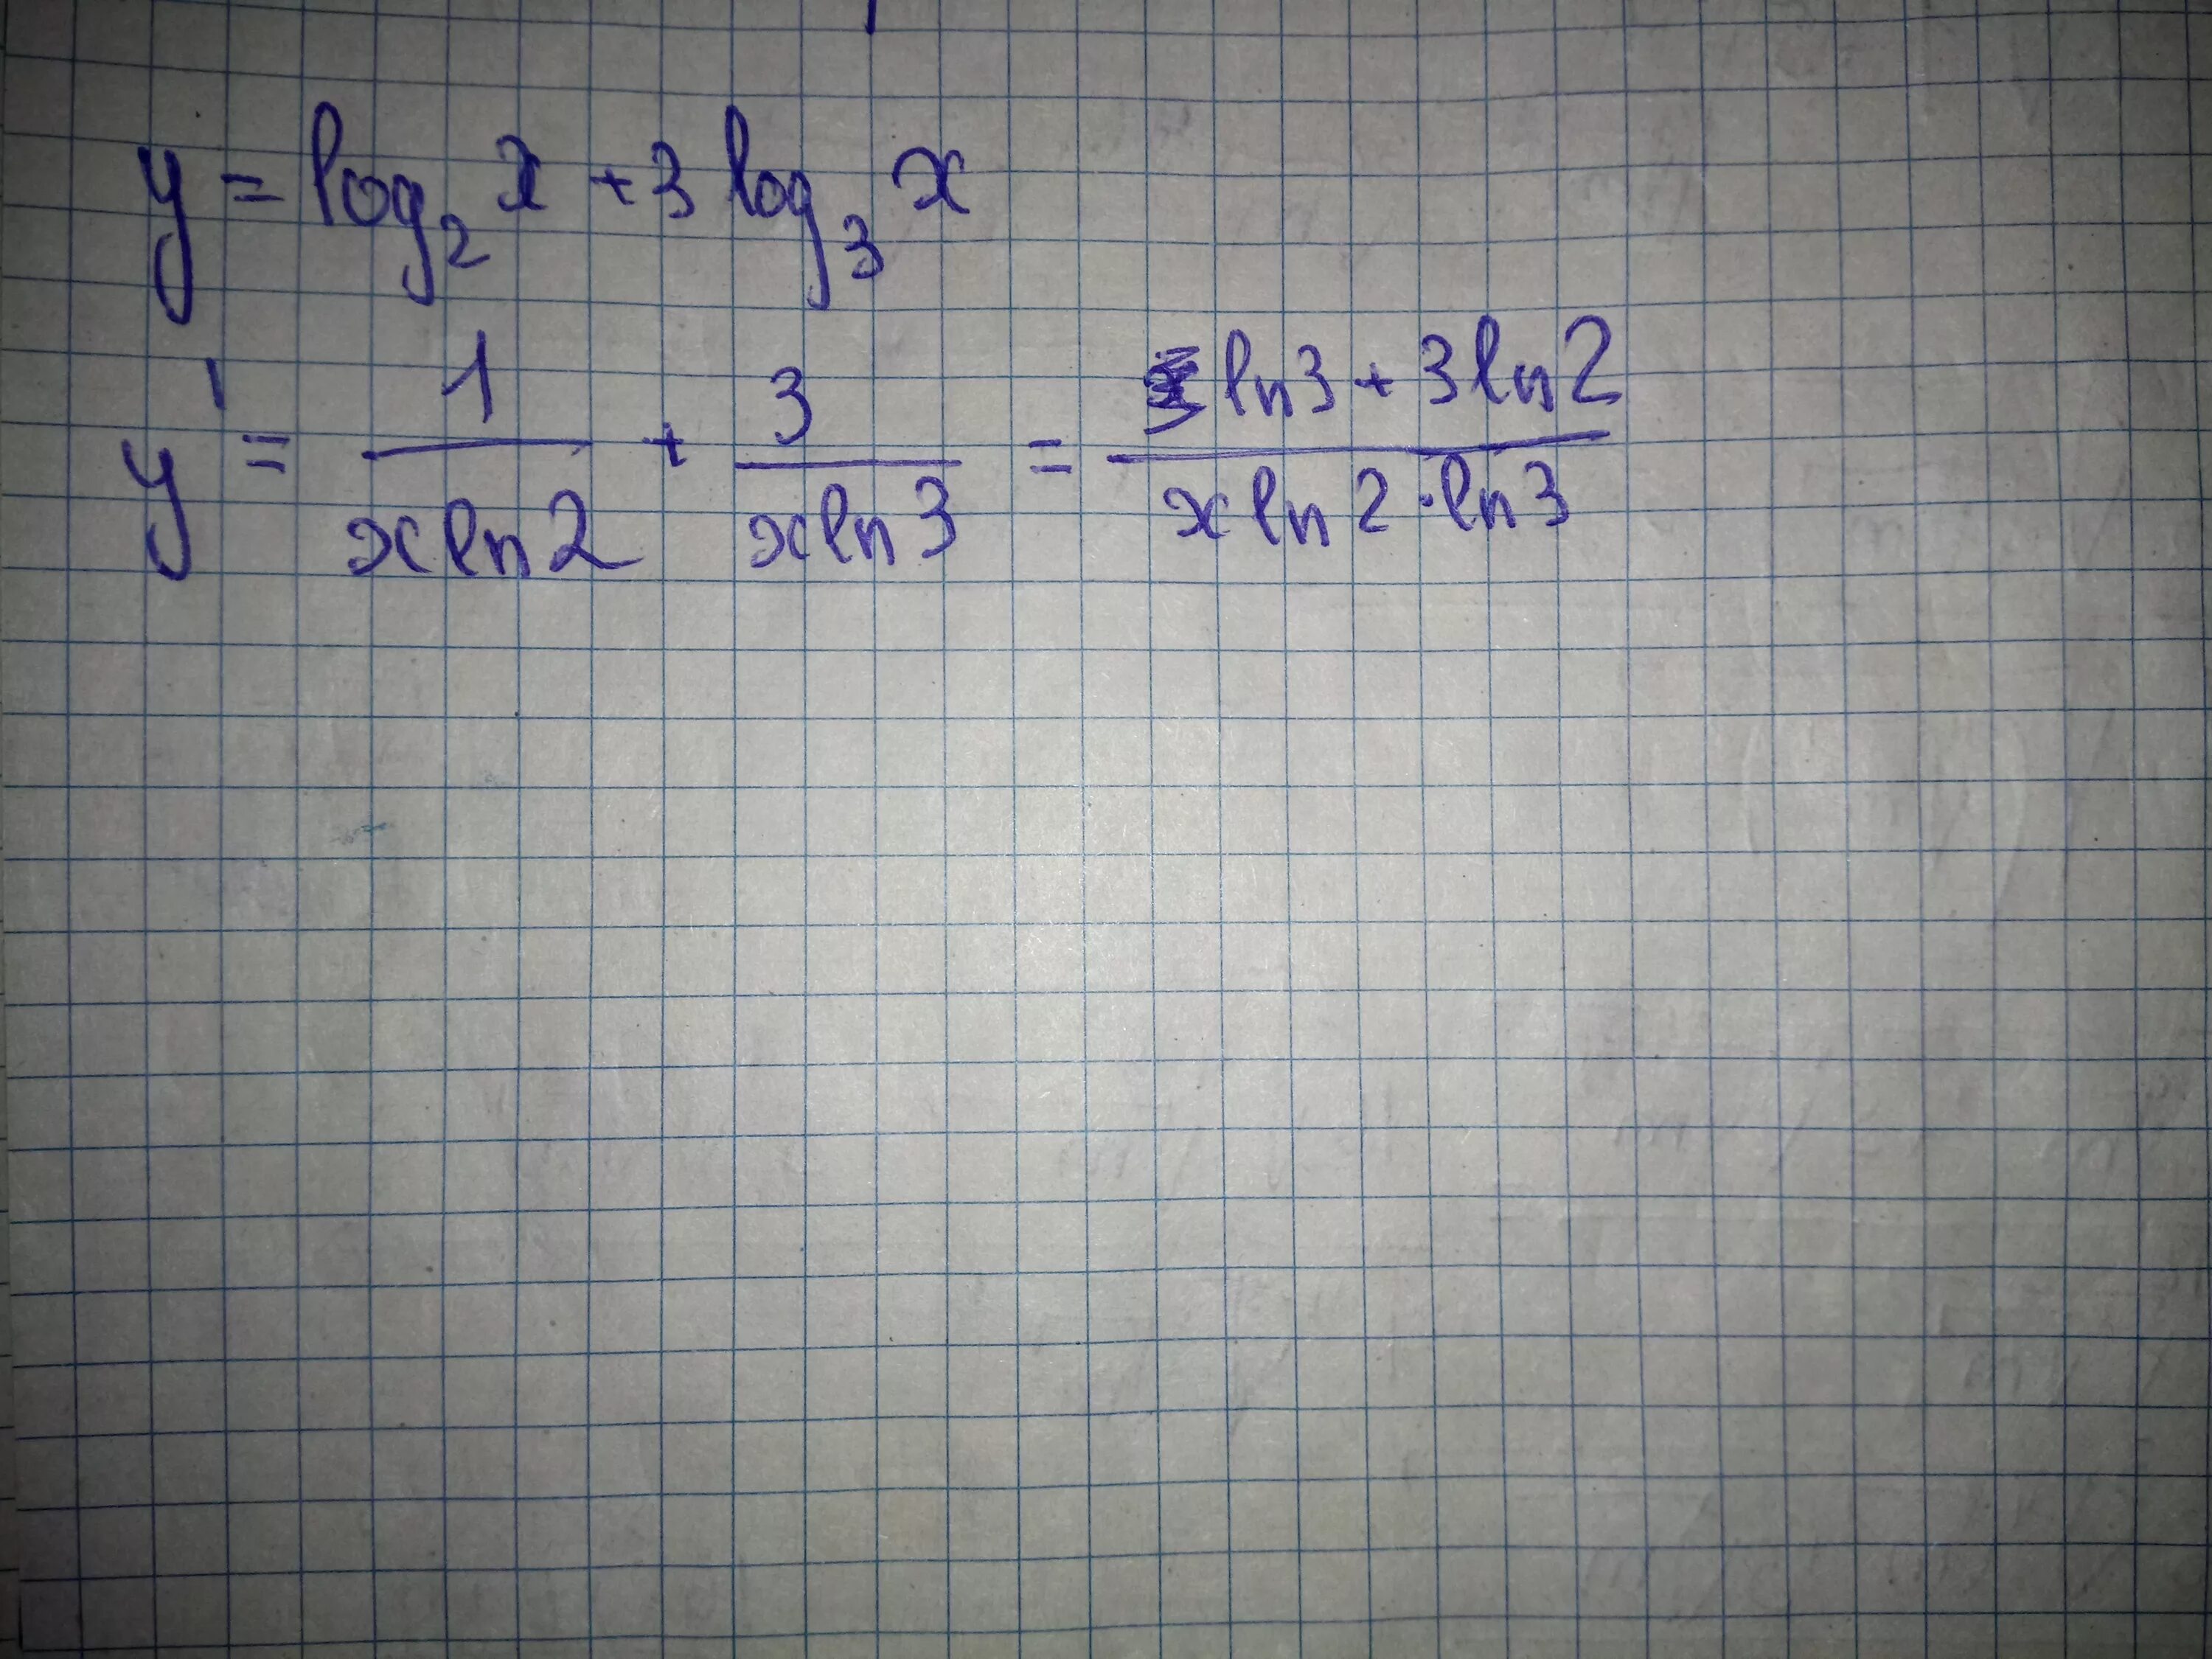 y = log₂ x + 3 log₃ x
y' = 1/(x ln 2) + 3/(x ln 3) = (ln 3 + 3 ln 2)/(x ln 2 · ln 3)